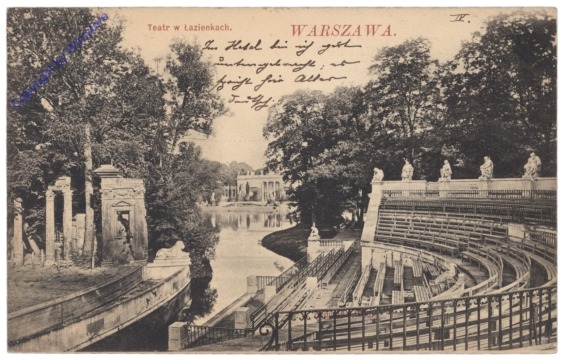 Teatr w Łazienkach.
WARSZAWA.
IV.
Im Hotel bin ich gut
untergebracht, es
spricht hier Alles
deutsch